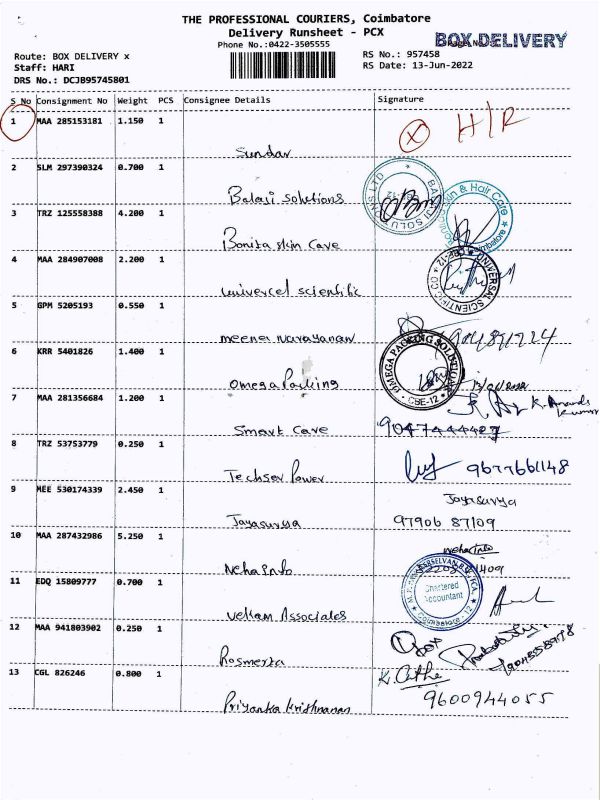 THE PROFESSIONAL COURIERS, Coimbatore
Delivery Runsheet - PCX
Phone No.:0422-3505555
BOX DELIVERY
Route: BOX DELIVERY x
Staff: HARI
DRS No.: DCJB95745801
RS No.: 957458
RS Date: 13-Jun-2022
S No Consignment No Weight PCS Consignee Details Signature
1 MAA 285153181 1.150 1
H/R
Sundar
2 SLM 297390324 0.700 1
Balaji Solutions
3 TRZ 125558388 4.200 1
Bonita skin Cave
4 MAA 284907008 2.200 1
univercel scientific
UNIVERSAL SCIENTIFIC CO CBE-12
5 GPM 5205193 0.550 1
meena narayanan
6 KRR 5401826 1.400 1
OMEGA PACKING SOLUTIONS CBE-12
Omega Packing
7 MAA 281356684 1.200 1
K. Anand Kumar
Smart Cave
8 TRZ 53753779 0.250 1
9677661148
Techser Power
9 MEE 530174339 2.450 1
Jayasurya
Jayasurya 97906 87109
10 MAA 287432986 5.250 1
Neha Info
Neha Info
11 EDQ 15809777 0.700 1
Chartered
Accountant
Coimbatore 12
Vellam Associates
12 MAA 941803902 0.250 1
Rosmerta
13 CGL 826246 0.800 1
9600944055
Priyanka Krishnanan